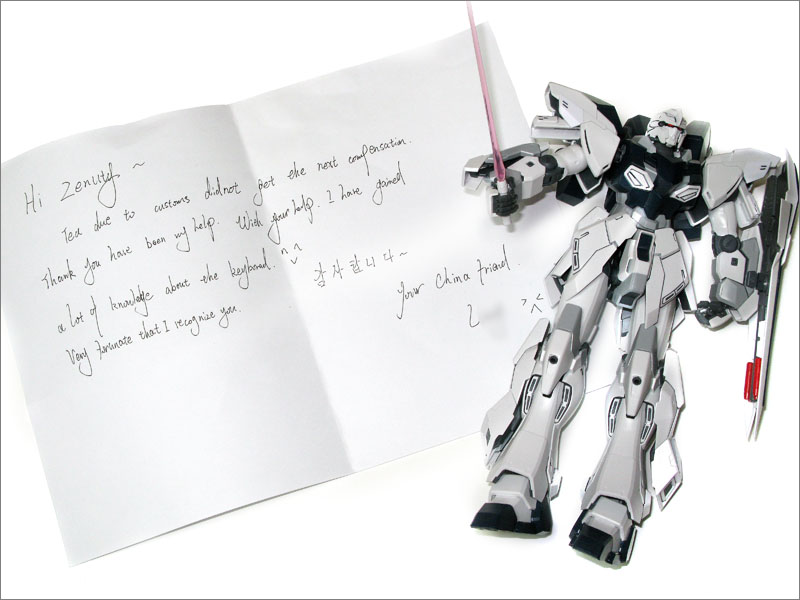 Hi Zenutyf ~
Tea due to customs didnot get the next compensation.
Thank you have been my help. With your help. I have gained
a lot of knowledge about the keyboard. ^^
감사합니다~
Very fortunate that I recognize you.
Your China friend.